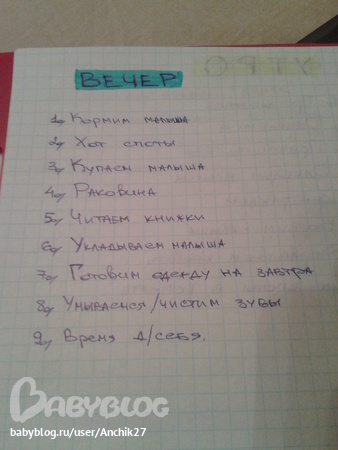 ВЕЧЕР
1) Кормим малыша
2) Хот споты
3) Купаем малыша
4) Раковина
5) Читаем книжки
6) Укладываем малыша
7) Готовим одежду на завтра
8) Умываемся/чистим зубы
9) Время д/себя.
BABYBLOG
babyblog.ru/user/Anchik27